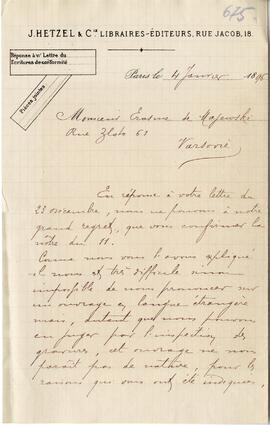 675
J. HETZEL & Cie LIBRAIRES-ÉDITEURS, RUE JACOB, 18.
Réponse à v/ Lettre du
Ecritures de conformité
Pièces jointes
Paris le 4 Janvier 1896
Monsieur Erasme de Majewski
Rue Zlota 61
Varsovie
En réponse à votre lettre du
23 décembre, nous ne pouvons à notre
grand regret, que vous confirmer la
nôtre du 11.
Comme nous vous l'avons expliqué
il nous est très difficile sinon
impossible de nous prononcer sur
un ouvrage en langue étrangère
mais, autant que nous pouvons
en juger par l'inspection des
gravures, cet ouvrage ne nous
paraît pas de nature, pour les
raisons que vous ont été indiquées,